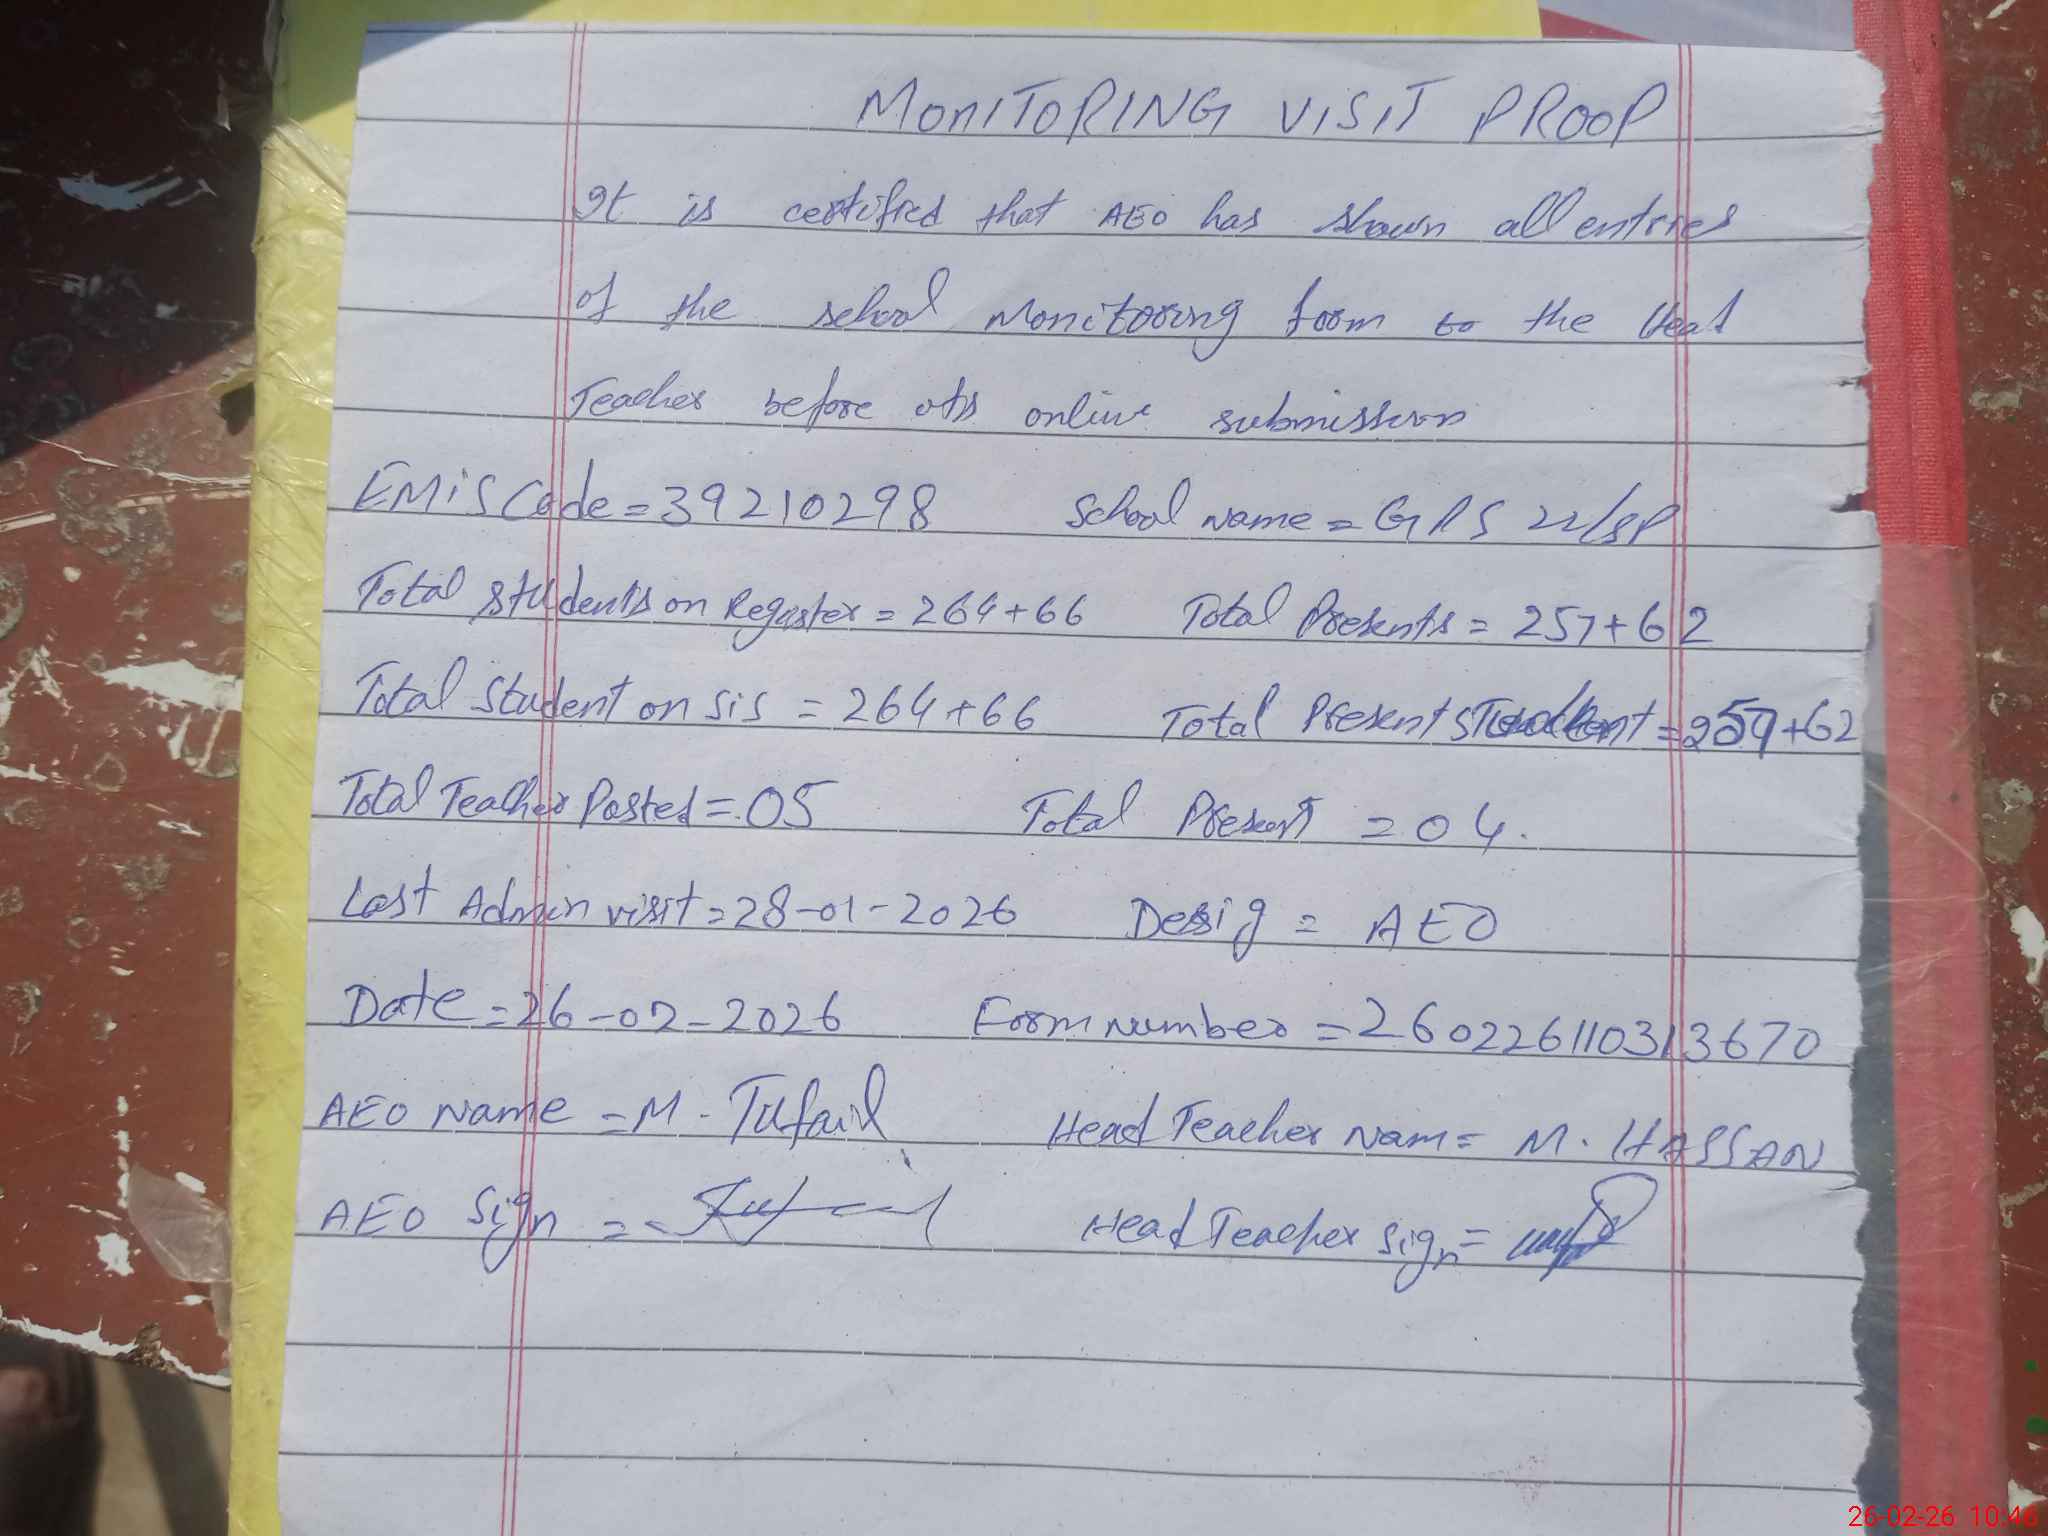 MONITORING VISIT PROOP
It is certified that AEO has shown all entries
of the school Monitoring form to the Head
Teacher before its online submission
EMIS Code = 39210298 School name = GPS 22/SP
Total students on Register = 264+66 Total Presents = 257+62
Total Student on SIS = 264+66 Total Present Student = 257+62
Total Teacher Posted = 05 Total Present = 04.
Last Admin visit = 28-01-2026 Desig = AEO
Date = 26-02-2026 Form number = 260226110313670
AEO Name = M. Tufail Head Teacher Nam = M. HASSAN
AEO Sign = Head Teacher Sign =
26-02-26 10:46